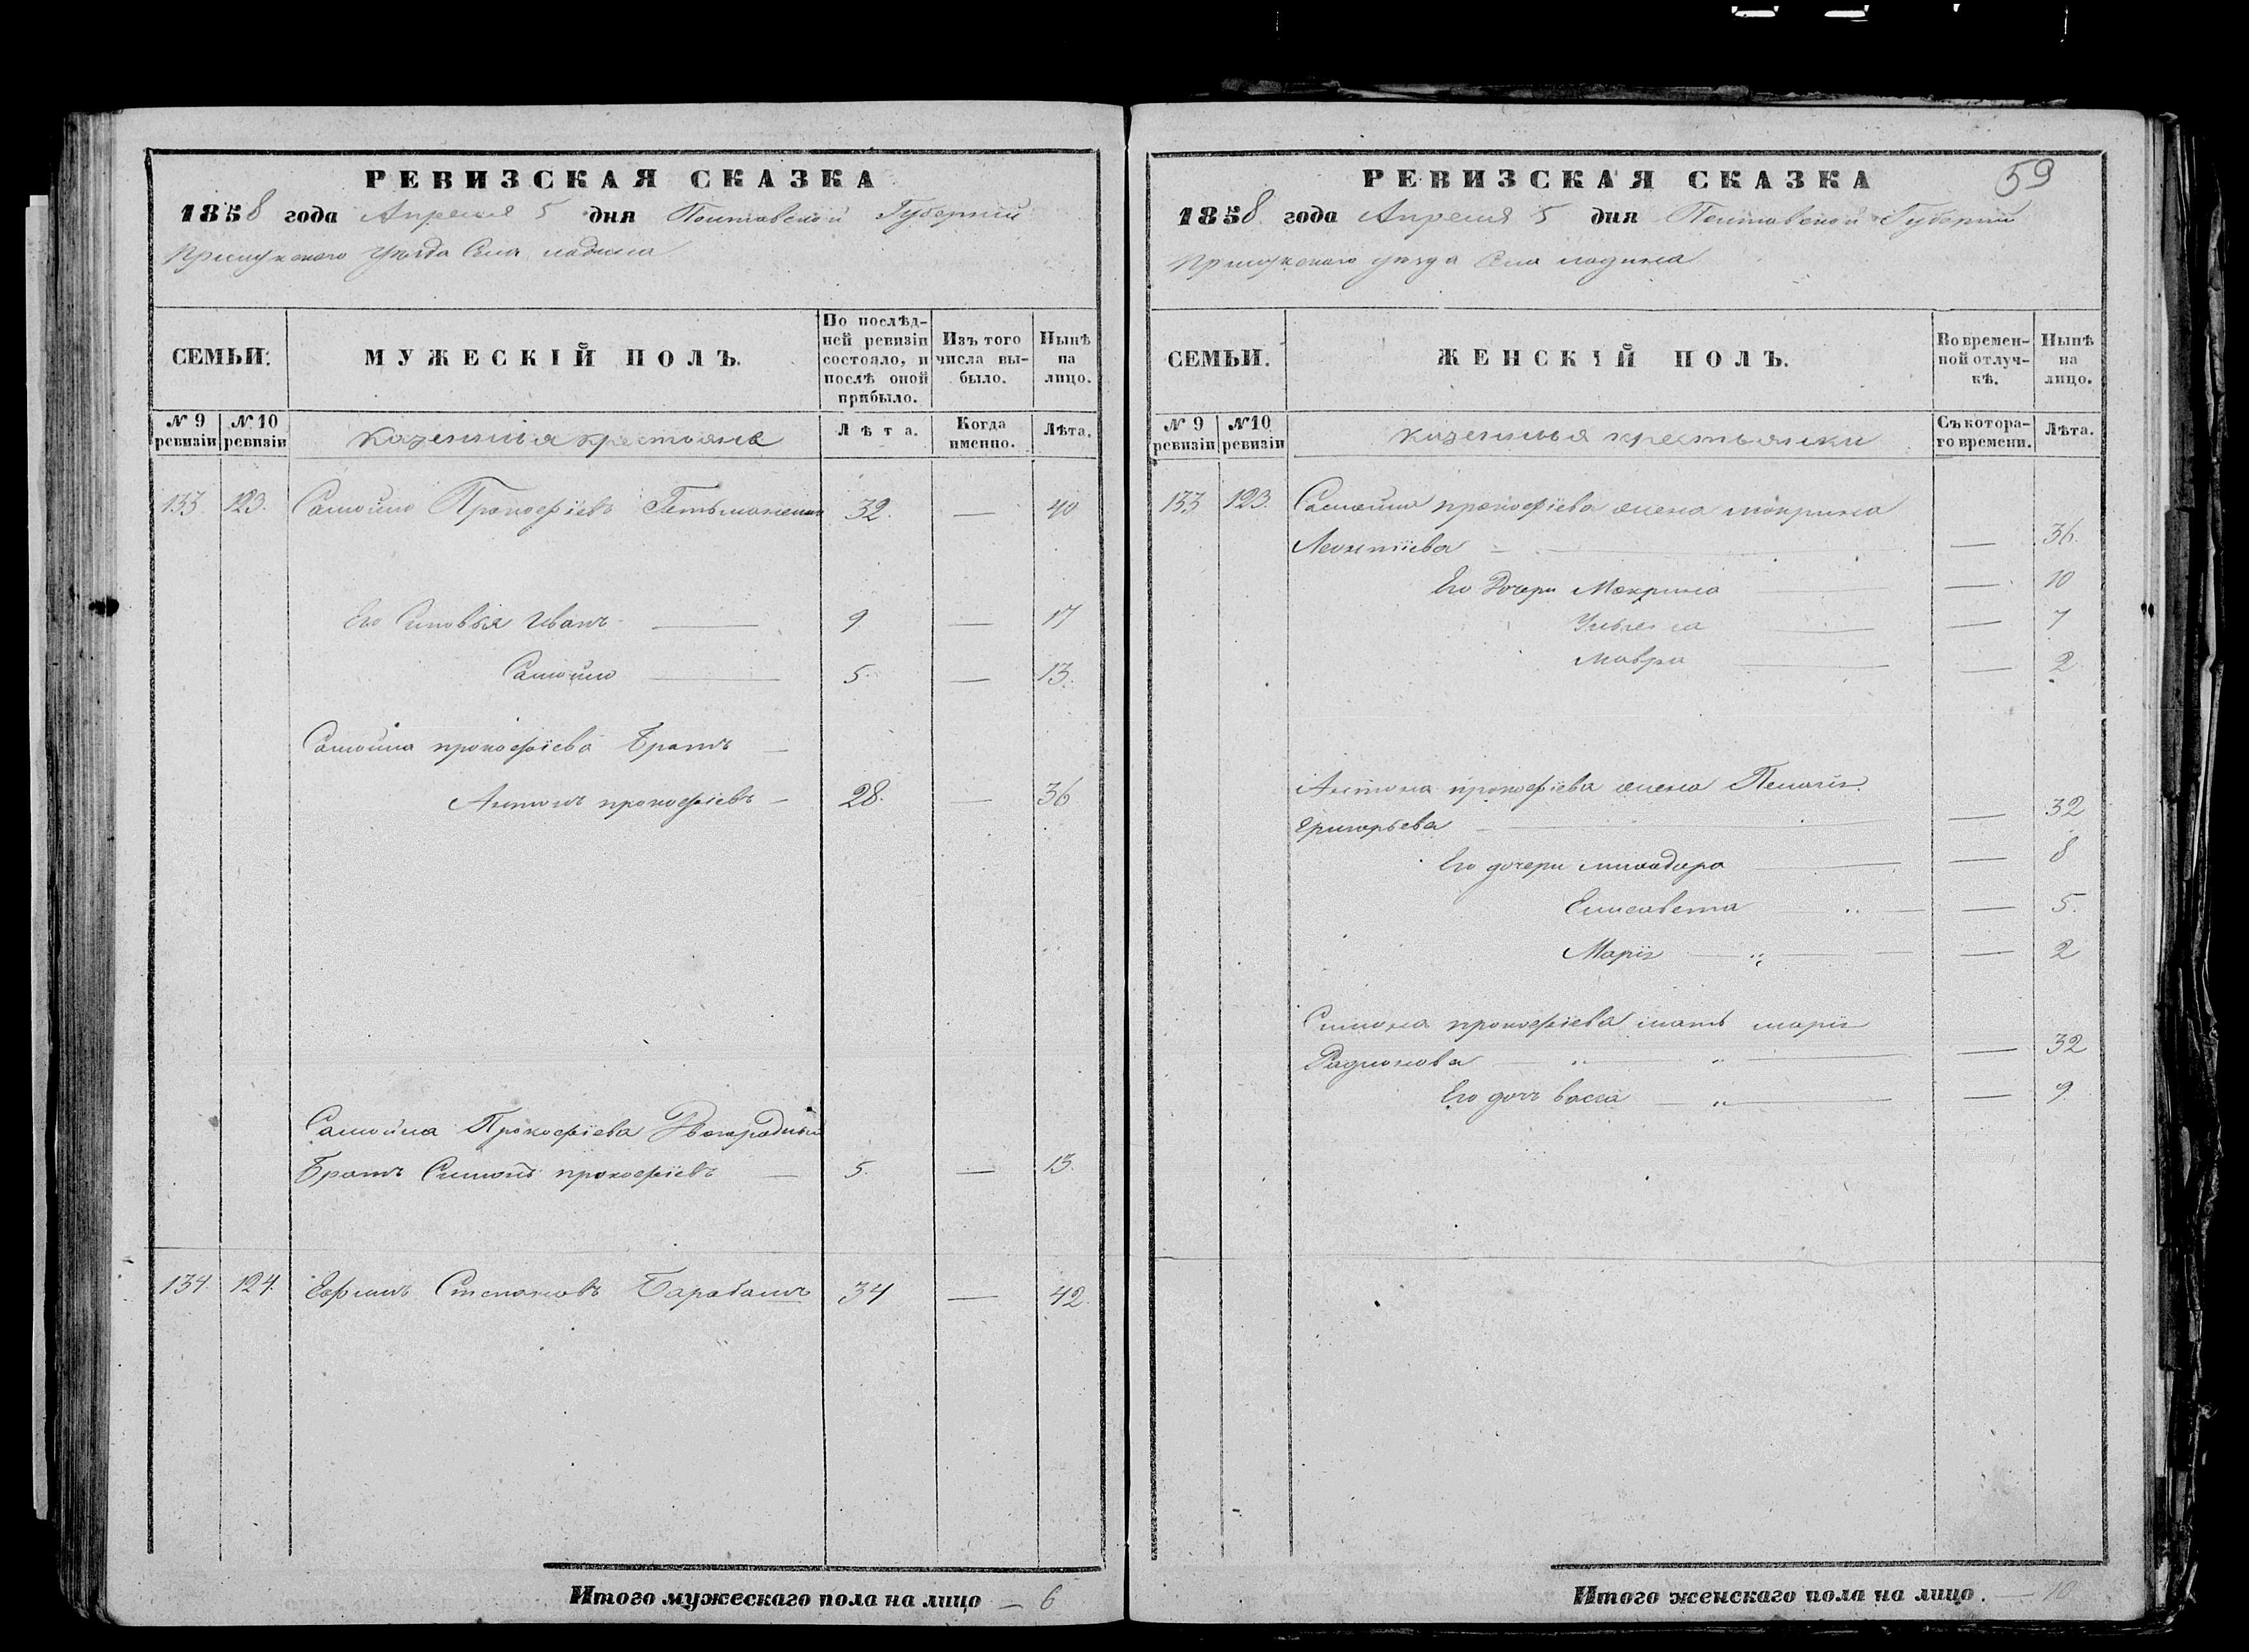 РЕВИЗСКАЯ СКАЗКА
1858 года Апреля 5 дня Полтавской Губернии
Прилукского уѣзда Села ладина
СЕМЬИ.
МУЖЕСКІЙ ПОЛЪ.
По послѣд-
ней ревизіи
состояло, и
послѣ оной
прибыло.
Изъ того
числа вы-
было.
Нынѣ
на
лицо.
№ 9
ревизіи
№ 10
ревизіи
казенныя крестьяне
Лѣта.
Когда
именно.
Лѣта.
133. 123. Самойло Прокофіевъ Гетьманенко 32. — 40
Его Сыновья Иванъ — 9 — 17
Самойло — 5. — 13.
Самойла прокофіева Братъ —
Антонъ прокофіевъ — 28. — 36
Самойла Прокофіева Двоюродный
Братъ Симонъ прокофіевъ — 5. — 13.
134. 124. Ефимъ Степановъ Барабашъ 34 — 42.
Итого мужескаго пола на лицо — 6
59
РЕВИЗСКАЯ СКАЗКА
1858 года Апреля 5 дня Полтавской Губерніи
Прилукского уезда Села ладина
СЕМЬИ.
ЖЕНСКІЙ ПОЛЪ.
Во времен-
ной отлуч-
кѣ.
Нынѣ
на
лицо.
№ 9
ревизіи
№ 10
ревизіи
казенныя крестьянки
Съ котора-
го времени.
Лѣта.
133 123. Самойла прокофіева жена мокрина
Леонтіева — — 36.
Его Дочери Мокрина — — 10
Ульяна — — 7
Мавра — — 2
Антона прокофіева жена Пелагія
Григорьева — — 32
Его дочери — — 8
Елисавета — — 5.
Марія — — 2
Симона прокофіева мать марія
Радионова — — 32
Его дочь васса — — 9
Итого женскаго пола на лицо. — 10